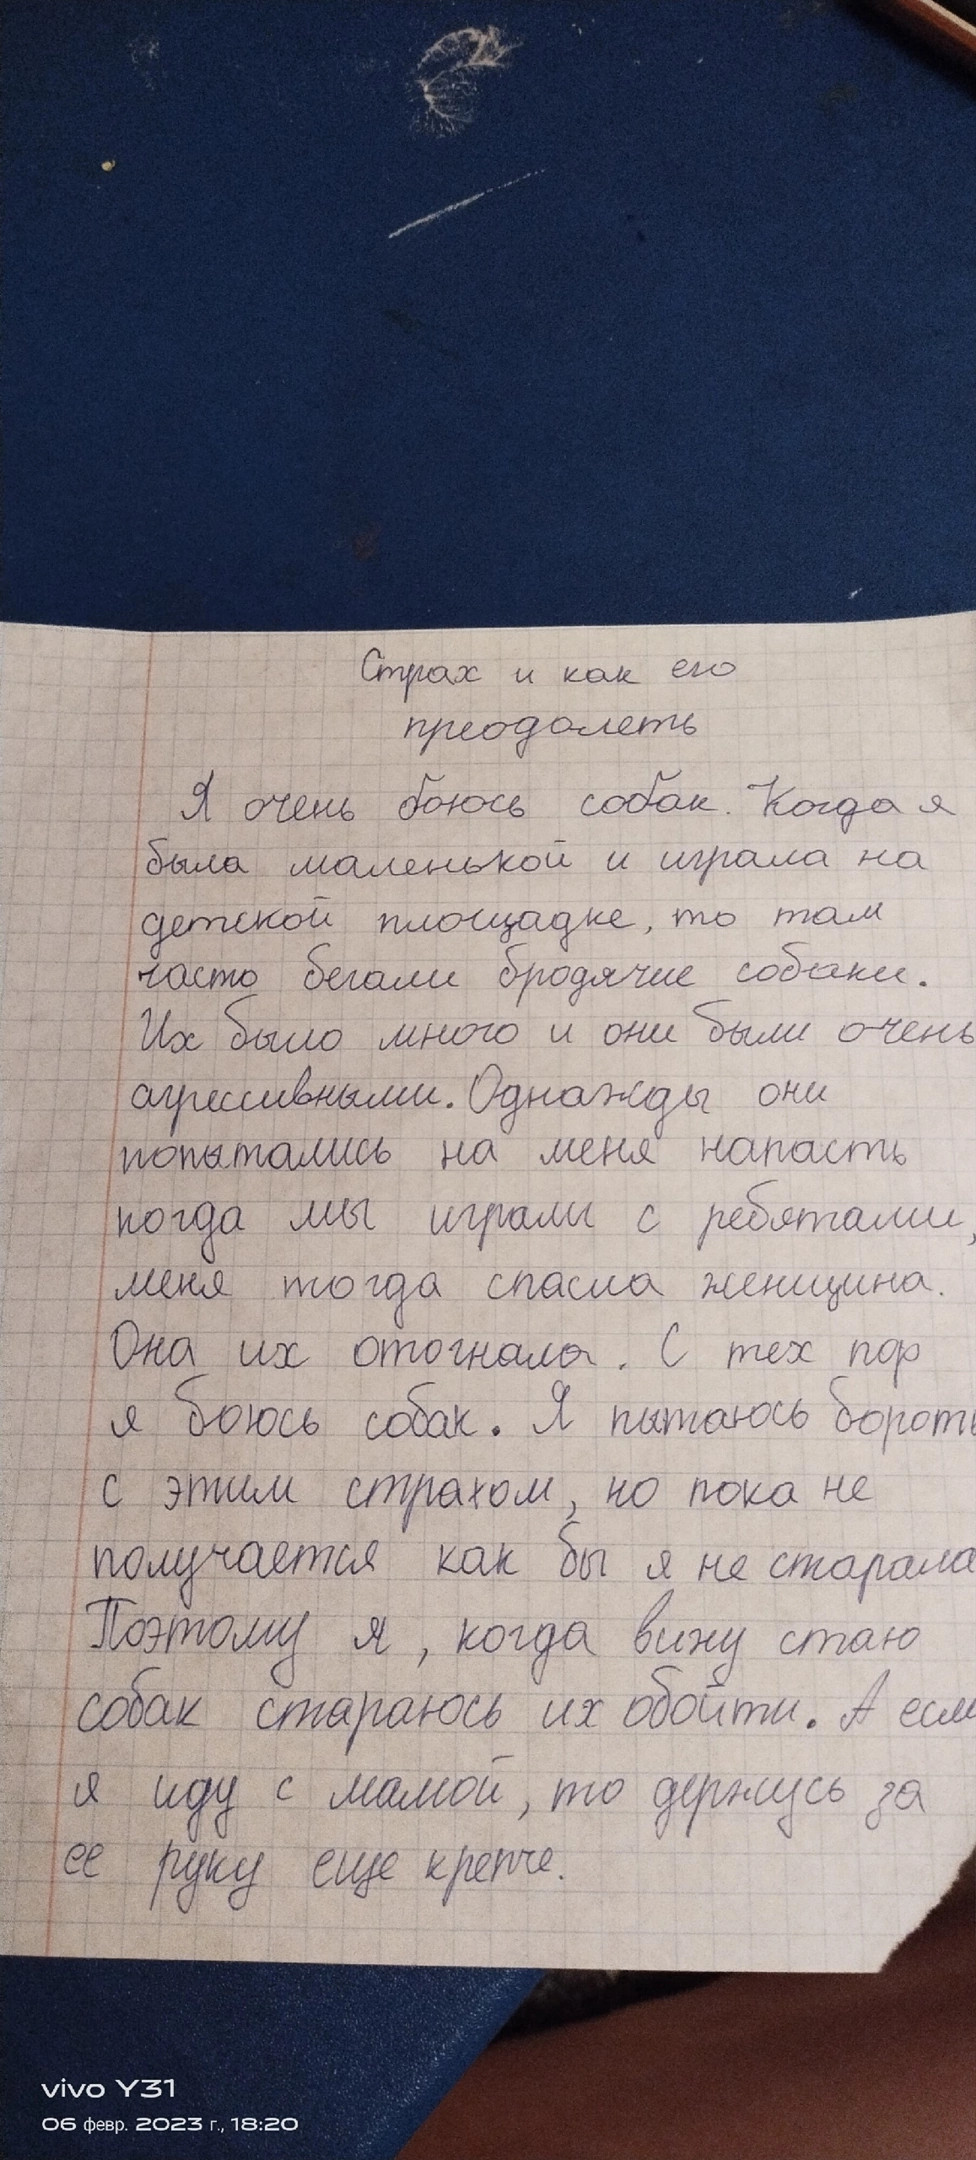 Страх и как его
преодолеть
Я очень боюсь собак. Когда я
была маленькой и играла на
детской площадке, то там
часто бегали бродячие собаки.
Их было много и они были очень
агрессивными. Однажды они
попытались на меня напасть
когда мы играли с ребятами,
меня тогда спасла женщина.
Она их отогнала. С тех пор
я боюсь собак. Я пытаюсь бороть
с этим страхом, но пока не
получается как бы я не старала
Поэтому я, когда вижу стаю
собак стараюсь их обойти. А если
я иду с мамой, то держусь за
ее руку еще крепче.
vivo Y31
06 февр. 2023 г., 18:20